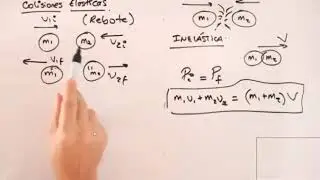 COLISIONES ELÁSTICAS
V₁ᵢ
(Rebote)
m₁ m₂ V₂ᵢ
V₁f
m₁ m₂
V₂f
m₁ m₂
INELÁSTICA
V
m₁ m₂
Pᵢ = Pf
m₁v₁ + m₂v₂ = (m₁+m₂) V